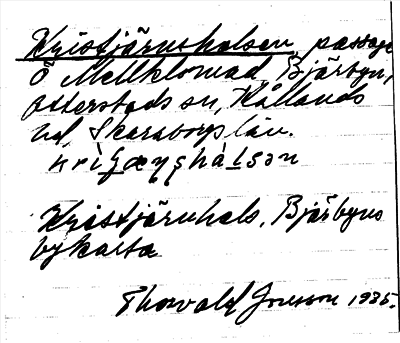 Kristjärnshalsen, passage
Ö Mellklomad, Bjärbyn,
Otterstads sn, Kållands
hd, Skaraborgs län.
Kristjärnhals, Bjärbyns
bykarta
Thorvald Jonsson 1935.